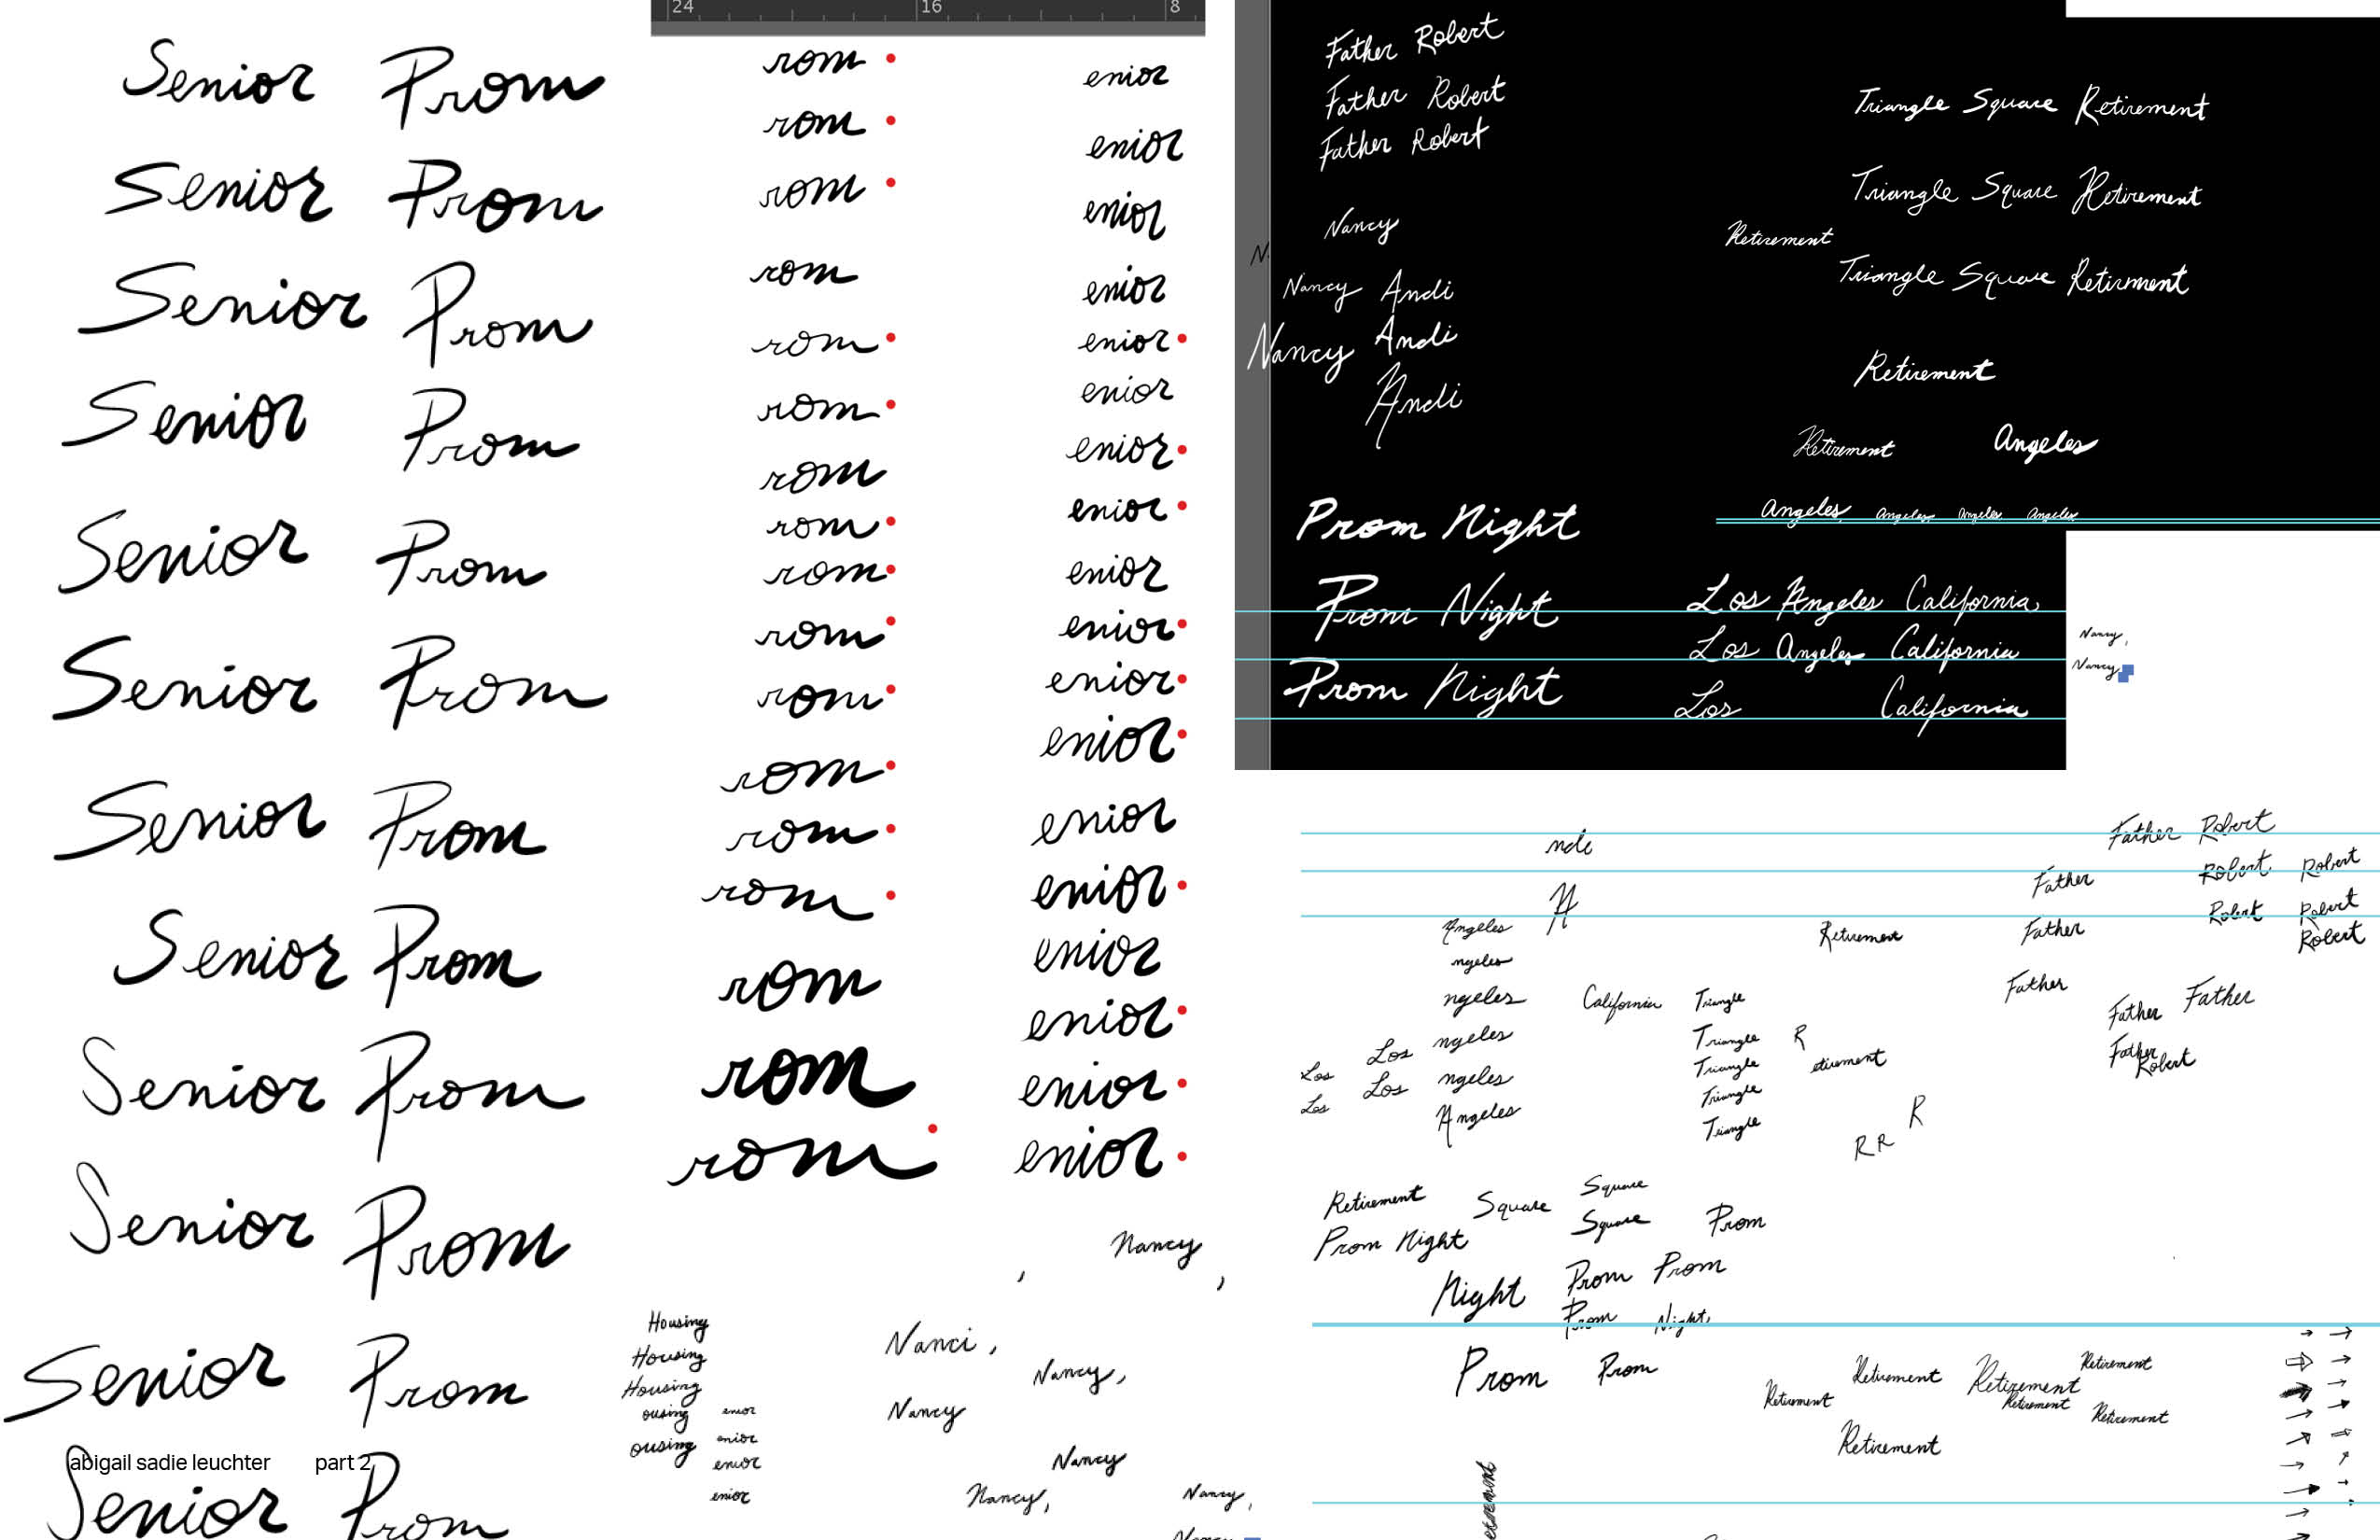 24 16 8
Senior Prom
Senior Prom
Senior Prom
Senior Prom
Senior Prom
Senior Prom
Senior Prom
Senior Prom
Senior Prom
Senior Prom
Senior Prom
abigail sadie leuchter part 2
Senior Prom
rom
rom
rom
rom
rom
rom
rom
rom
rom
rom
rom
rom
rom
rom
rom
rom
rom
enior
enior
enior
enior
enior
enior
enior
enior
enior
enior
enior
enior
enior
enior
enior
enior
enior
enior
Nancy,
Housing
Housing
Housing
ousing
ousing
enior
enior
enior
enior
Nanci,
Nancy,
Nancy
Nancy
Nancy,
Nancy,
Father Robert
Father Robert
Father Robert
Nancy
Nancy Andi
Nancy Andi
Andi
Triangle Square Retirement
Triangle Square Retirement
Retirement
Triangle Square Retirment
Retirement
Retirement Angeles
Angeles Angeles Angeles Angeles
Prom Night
Prom Night
Prom Night
Los Angeles California,
Los Angeles California
Los California
Nancy,
Nancy,
nde
A
Angeles
ngeles
ngeles
ngeles
ngeles
Angeles
Los
Los
Los
Los
California
Triangle
Triangle
Triangle
Triangle
Triangle
Retirement
R
etirement
R
R R
Father Robert
Father Robert Robert
Robert Robert
Father Robert
Father
Father Father
Father
Robert
Retirement Square Square
Square Prom
Prom Night
Night Prom Prom
Prom Night,
Prom Prom
Retirement Retirement Retirement
Retirement Retirement
Retirement
Retirement